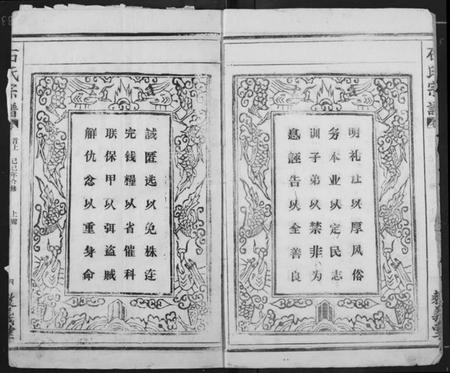 石氏宗譜
明礼让以厚风俗
务本业以定民志
训子弟以禁非为
息誣告以全善良
誠匿逃以免株连
完钱糧以省催科
联保甲以弭盗贼
解仇忿以重身命
石氏宗譜
首上